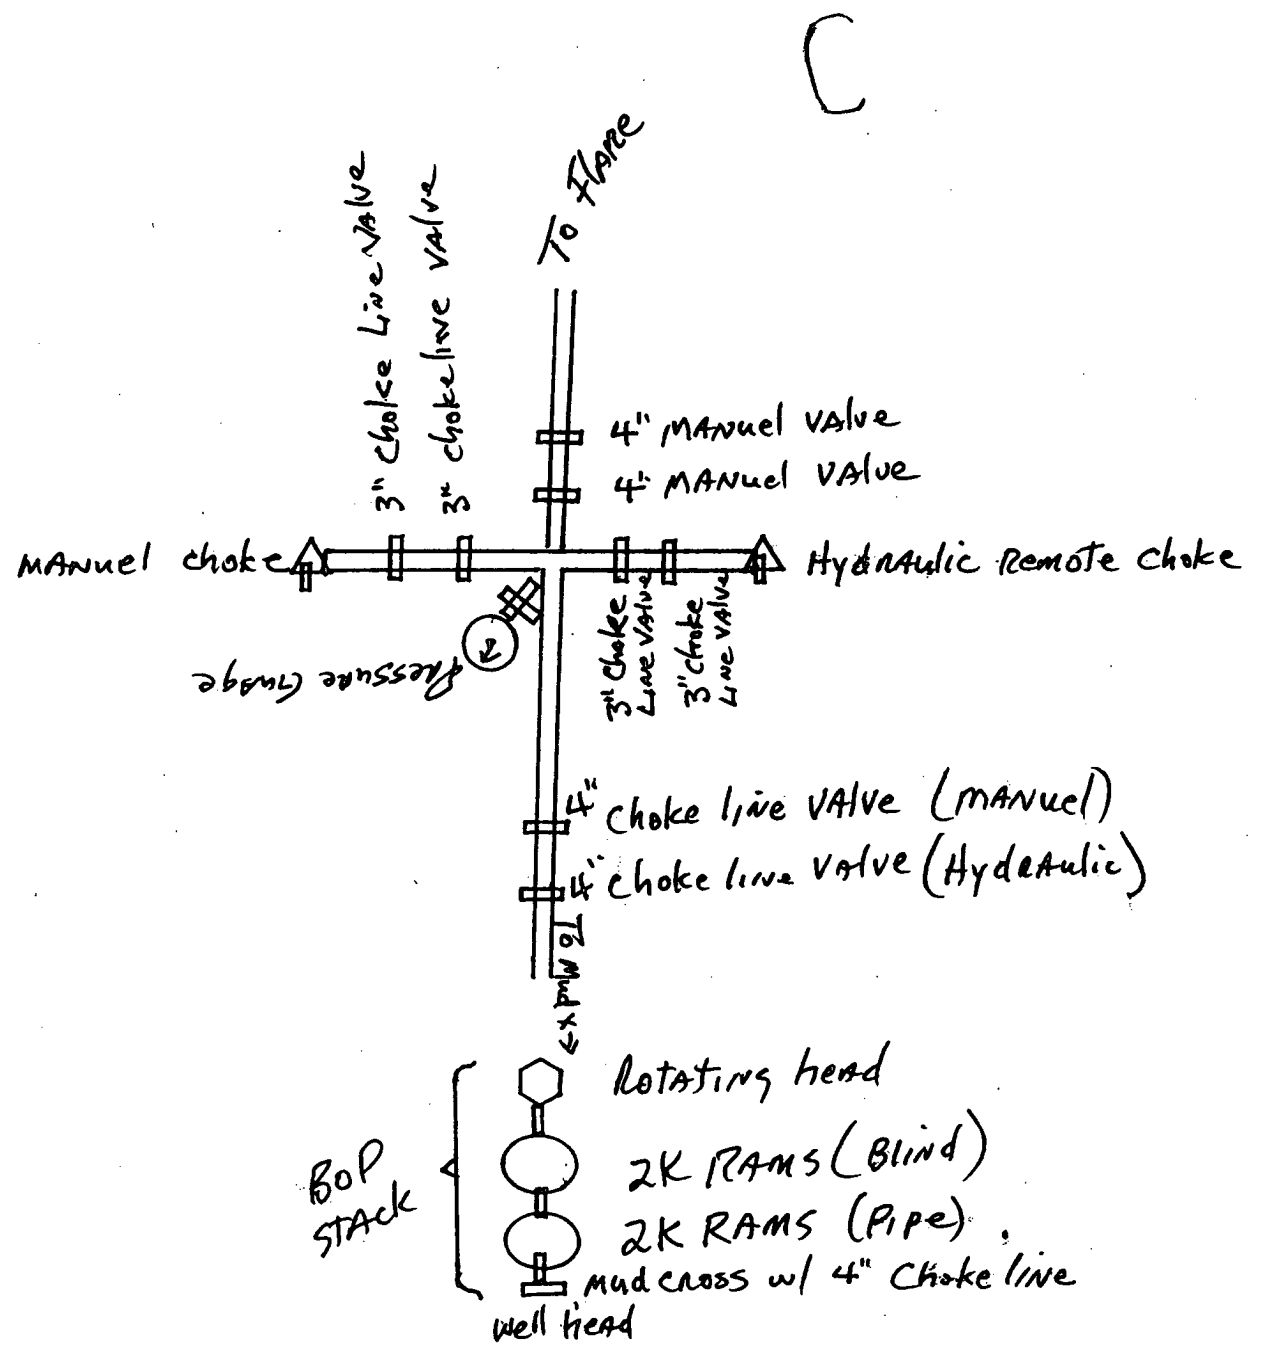 C
To Flare
3" Choke Line Valve
3" Choke line Valve
4" Manuel Valve
4" Manuel Valve
Manuel Choke
Hydraulic Remote Choke
3" Choke
Line Valve
3" Choke
Line Valve
Pressure Guage
4" Choke line Valve (Manuel)
4" Choke line Valve (Hydraulic)
To Mud x
Rotating head
BOP
Stack
2K Rams (Blind)
2K Rams (Pipe).
Mud cross w/ 4" Choke line
Well head